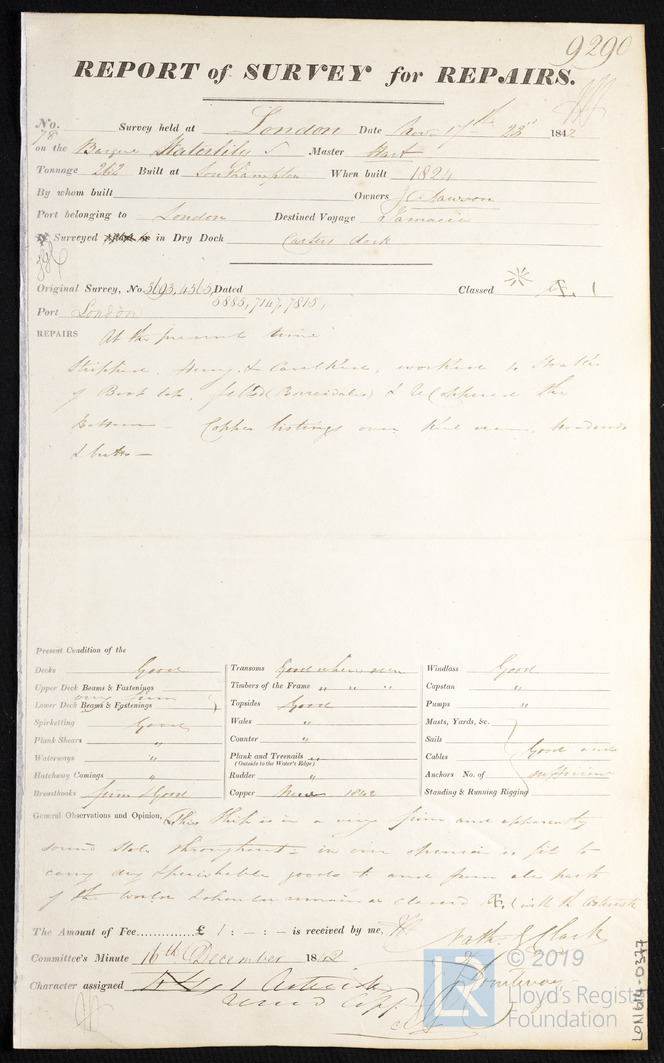 9290
REPORT of SURVEY for REPAIRS.
No. 78 Survey held at London Date Nov. 17th 23rd 1842
on the Barque Waterlily Master Hart
Tonnage 262 Built at Southampton When built 1824
By whom built Owners J C Lawson
Port belonging to London Destined Voyage Jamaica
Surveyed in Dry Dock Carters dock
Original Survey, No. 3693, 4565, Dated Classed Æ. 1
5885, 7147, 7815,
Port London
REPAIRS At the present time
Stripped, & Caulked, worked
of Boot top, felted (Borrodailes) & ReCoppered the
Bottom - Copper listings over Keel
& butts -
Present Condition of the
Decks Good
Upper Deck Beams & Fastenings
Lower Deck Beams & Fastenings very firm
Spirketting Good
Plank Shears "
Waterways "
Hatchway Comings "
Breasthooks firm & Good
Transoms Good where seen
Timbers of the Frame " " "
Topsides Good
Wales "
Counter "
Plank and Treenails "
(Outside to the Water's Edge)
Rudder "
Copper New 1842
Windlass Good
Capstan "
Pumps "
Masts, Yards, &c.
Sails
Cables Good and
Anchors No. of sufficient
Standing & Running Rigging
General Observations and Opinion, This Ship is in a very firm and apparently
sound state throughout - in our opinion is fit to
carry dry & perishable goods to and from all parts
of the world & should remain as classed Æ. 1 with the Asterisk
The Amount of Fee £ 1 : - : - is received by me, Nathl. G Clark
Committee's Minute 16th December 1842
Character assigned Æ 1 Asterisk
© 2019
Lloyd's Register
Foundation
LON614-0377